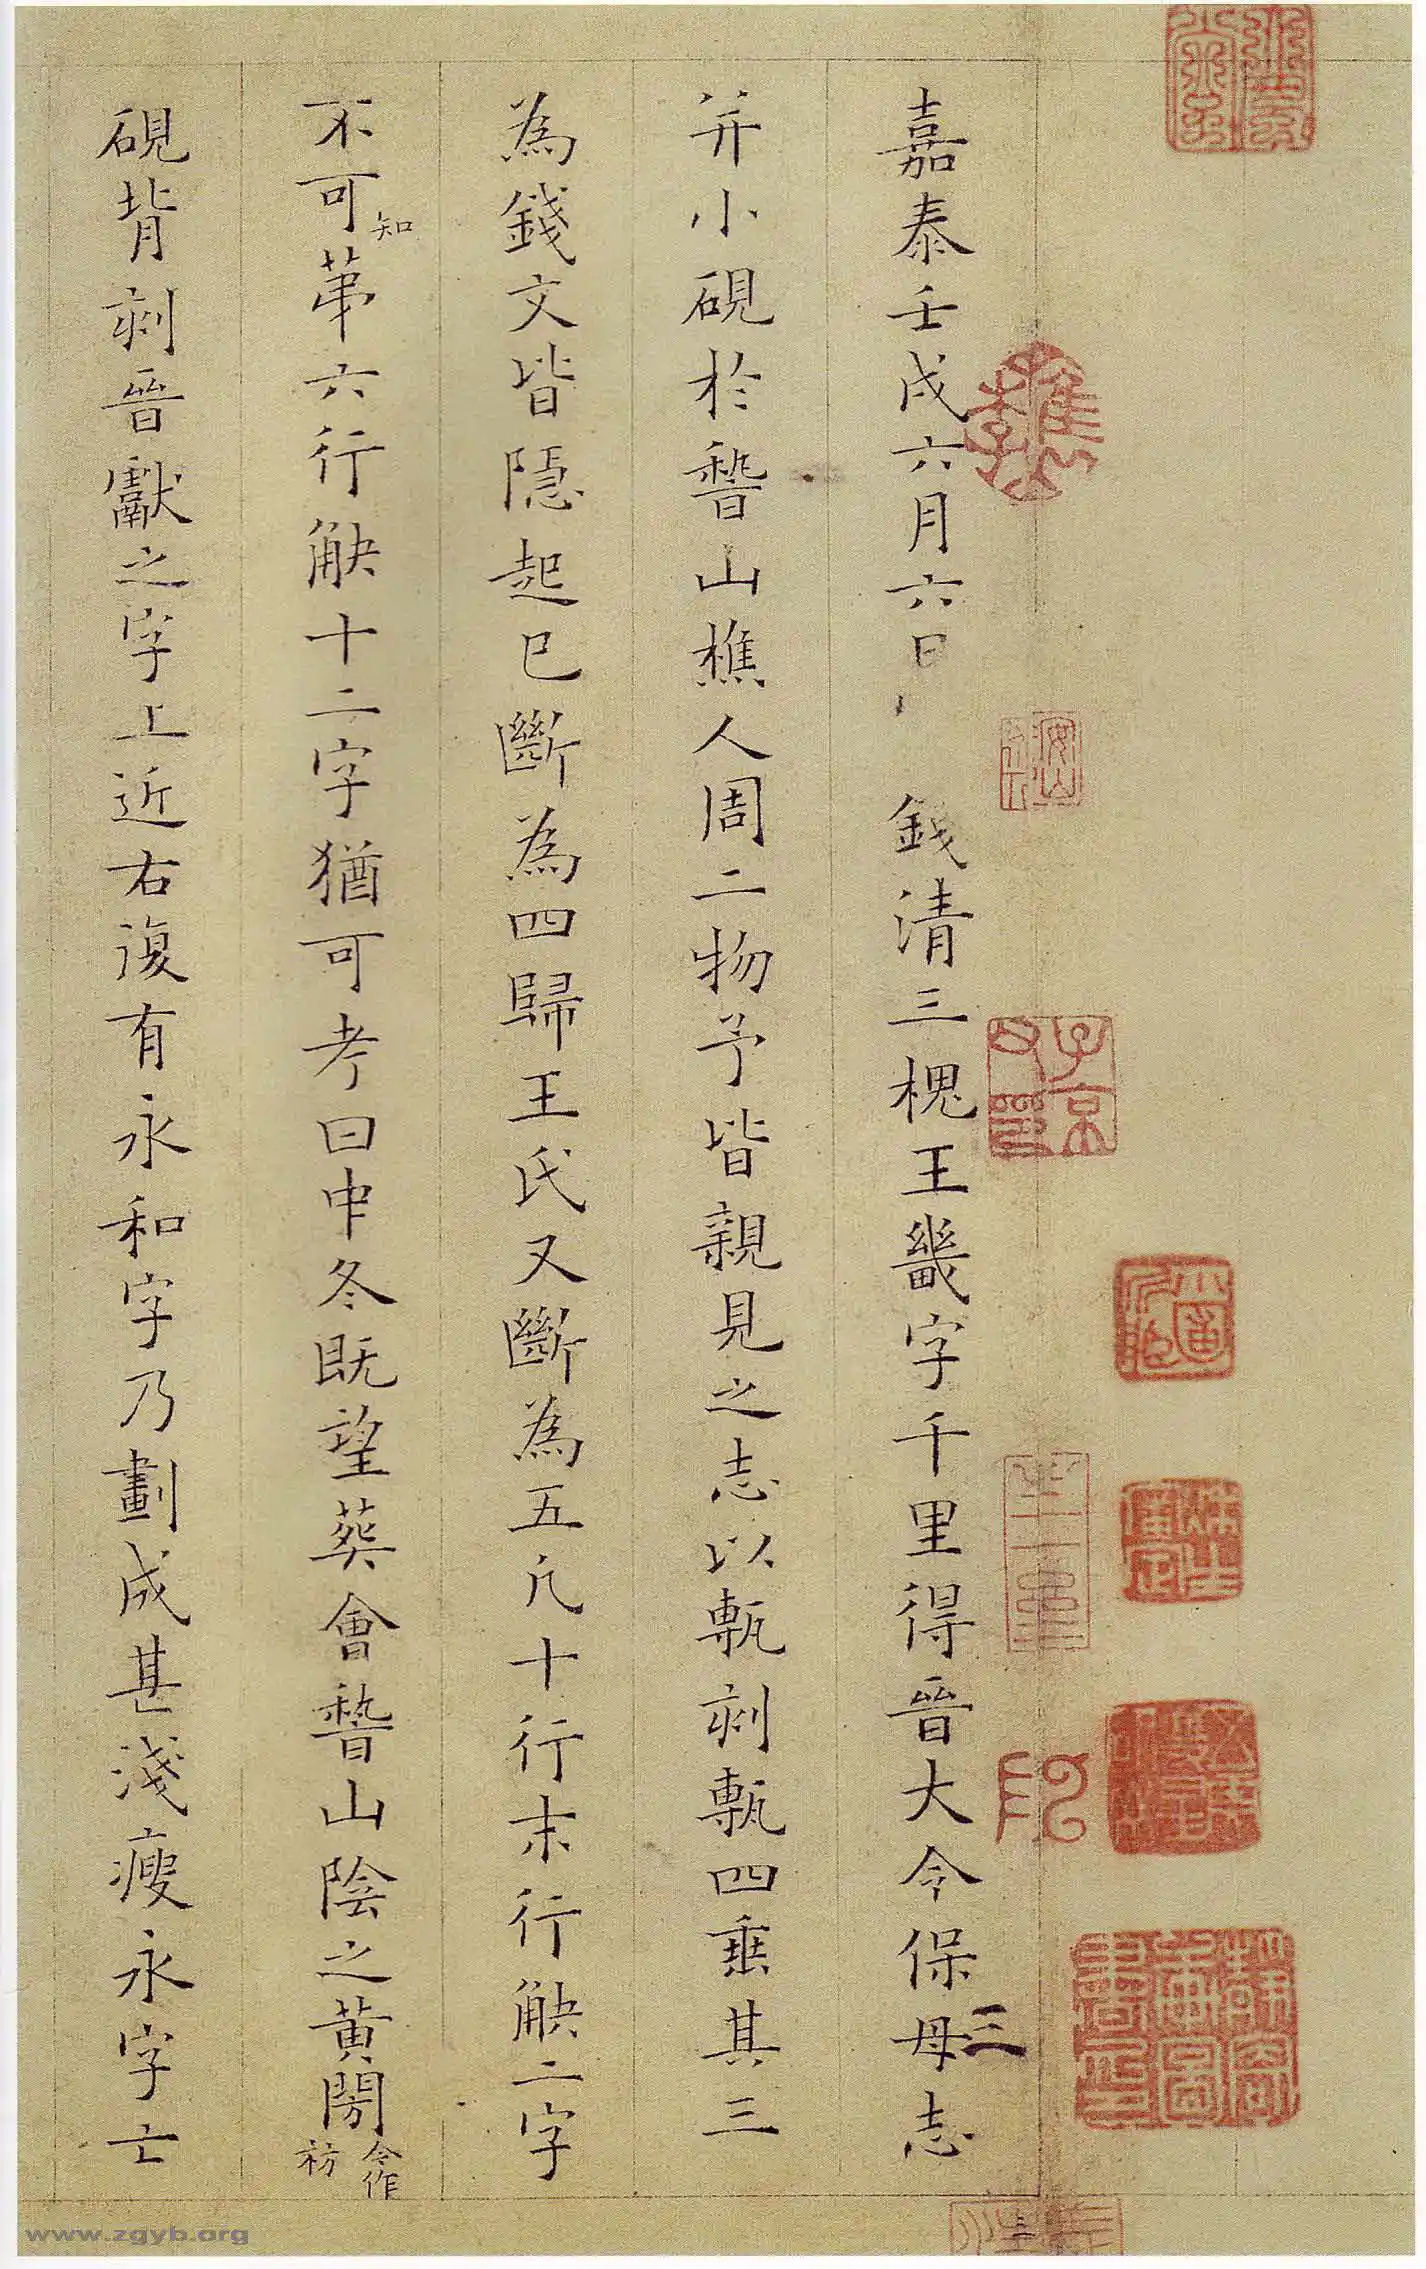 嘉泰壬戌六月六日錢清三槐王畿字千里得晉大令保母志
三
并小硯於嵆山樵人周二物予皆親見之志以甎刻甎四垂其三
為錢文皆隱起已斷為四歸王氏又斷為五凡十行末行觖二字
不可知第六行觖十二字猶可考曰中冬既望葬會嵆山陰之黃閍今作祊
硯背刻晉獻之字上近右復有永和字乃劃成甚淺瘦永字亡
www.zgyb.org